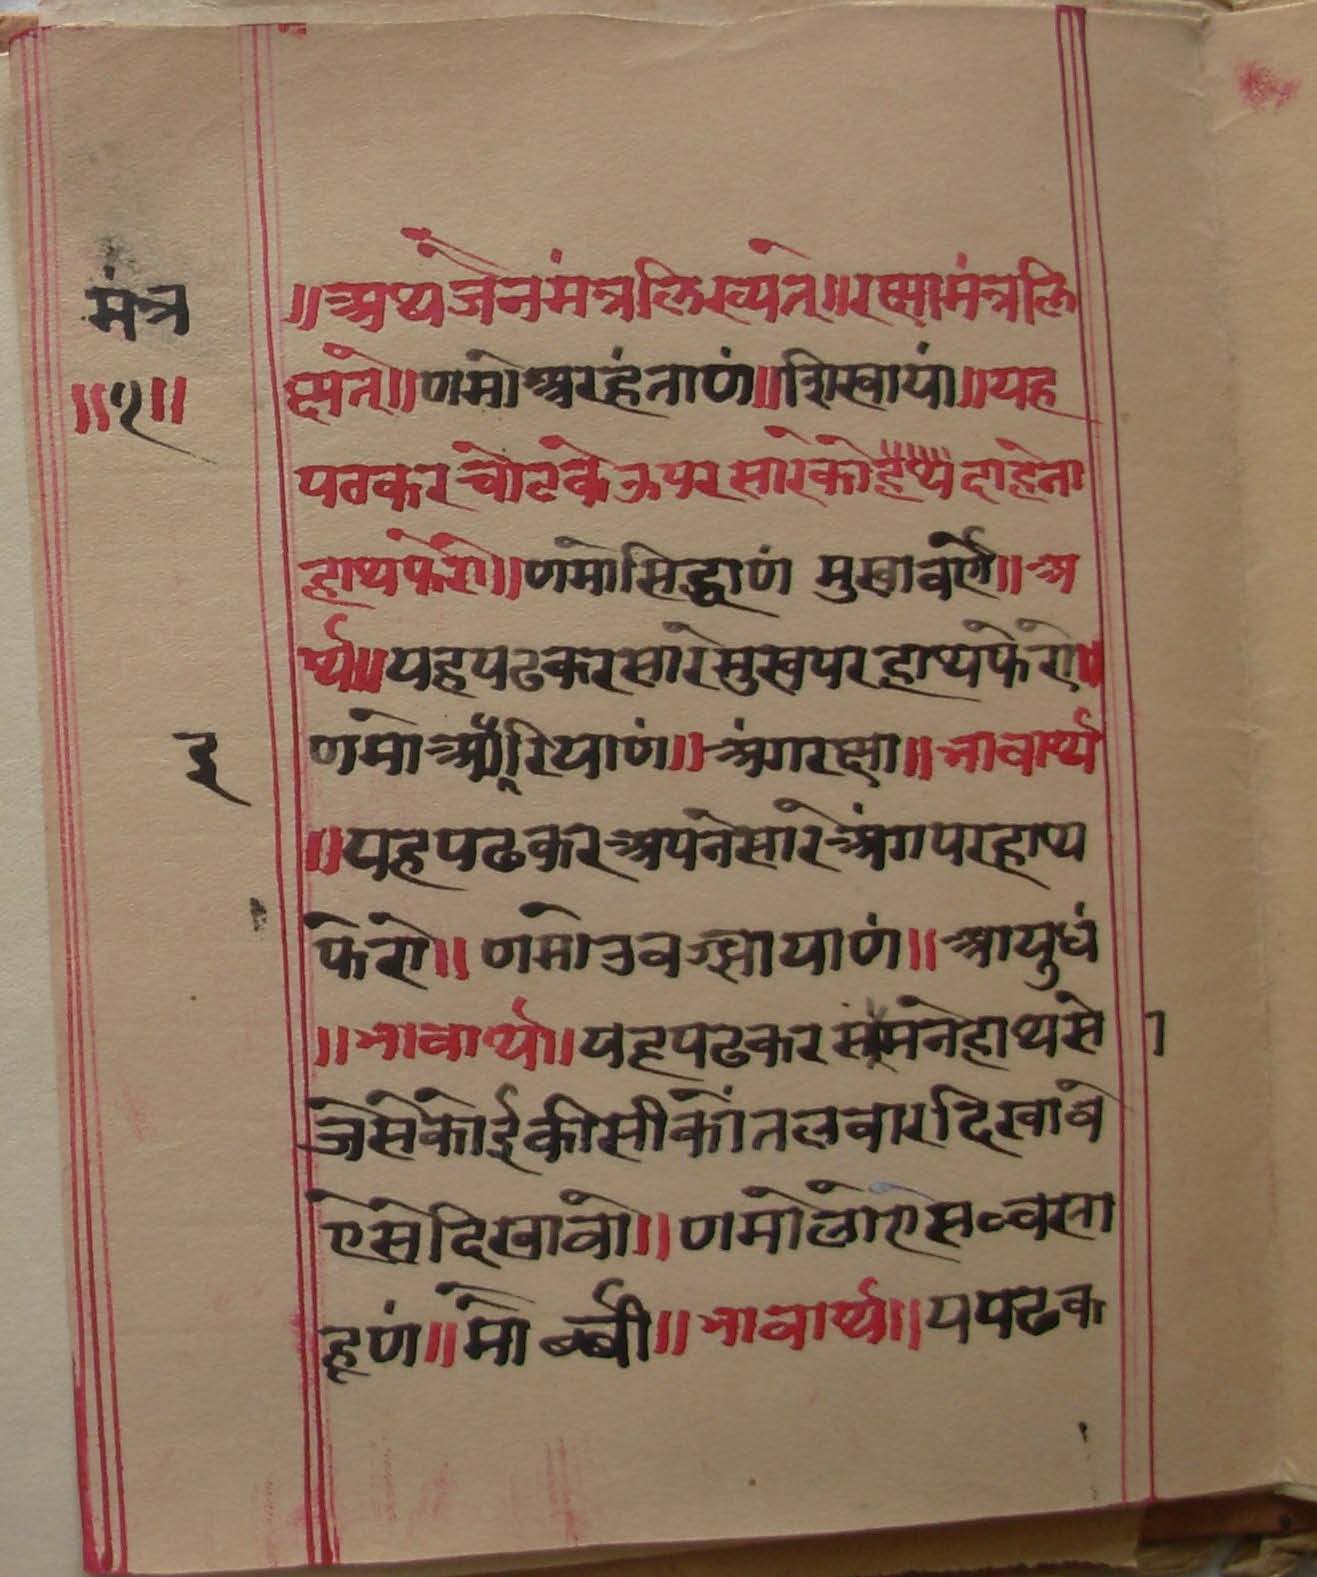 मंत्र
॥१॥
॥अथजैनमंत्रलिख्यते॥रक्षामंत्रलि
क्षते॥णमोअरहंताणं॥शिखायां॥यह
पठकर चोटके ऊपर सारेको दाहेना
हाथफेरो॥णमोसिद्धाणं मुखावर्णे॥अ
र्थ॥यहपढकरसारेमुखपरहाथफेरो॥
इ
णमोआरियाणं॥अंगरक्षा॥भावार्थ
॥यहपढकरअपनेसारेअंगपरहाथ
फेरो॥णमोउवज्झायाणं॥आयुधं
॥भावार्थ॥यहपढकरसामनेहाथसे
जेसेकोईकीसीकोंतलवारदिखावे
ऐसेदिखावो॥णमोलोऐसव्वसा
हूणं॥मौर्ब्बी॥भावार्थ॥यपढक